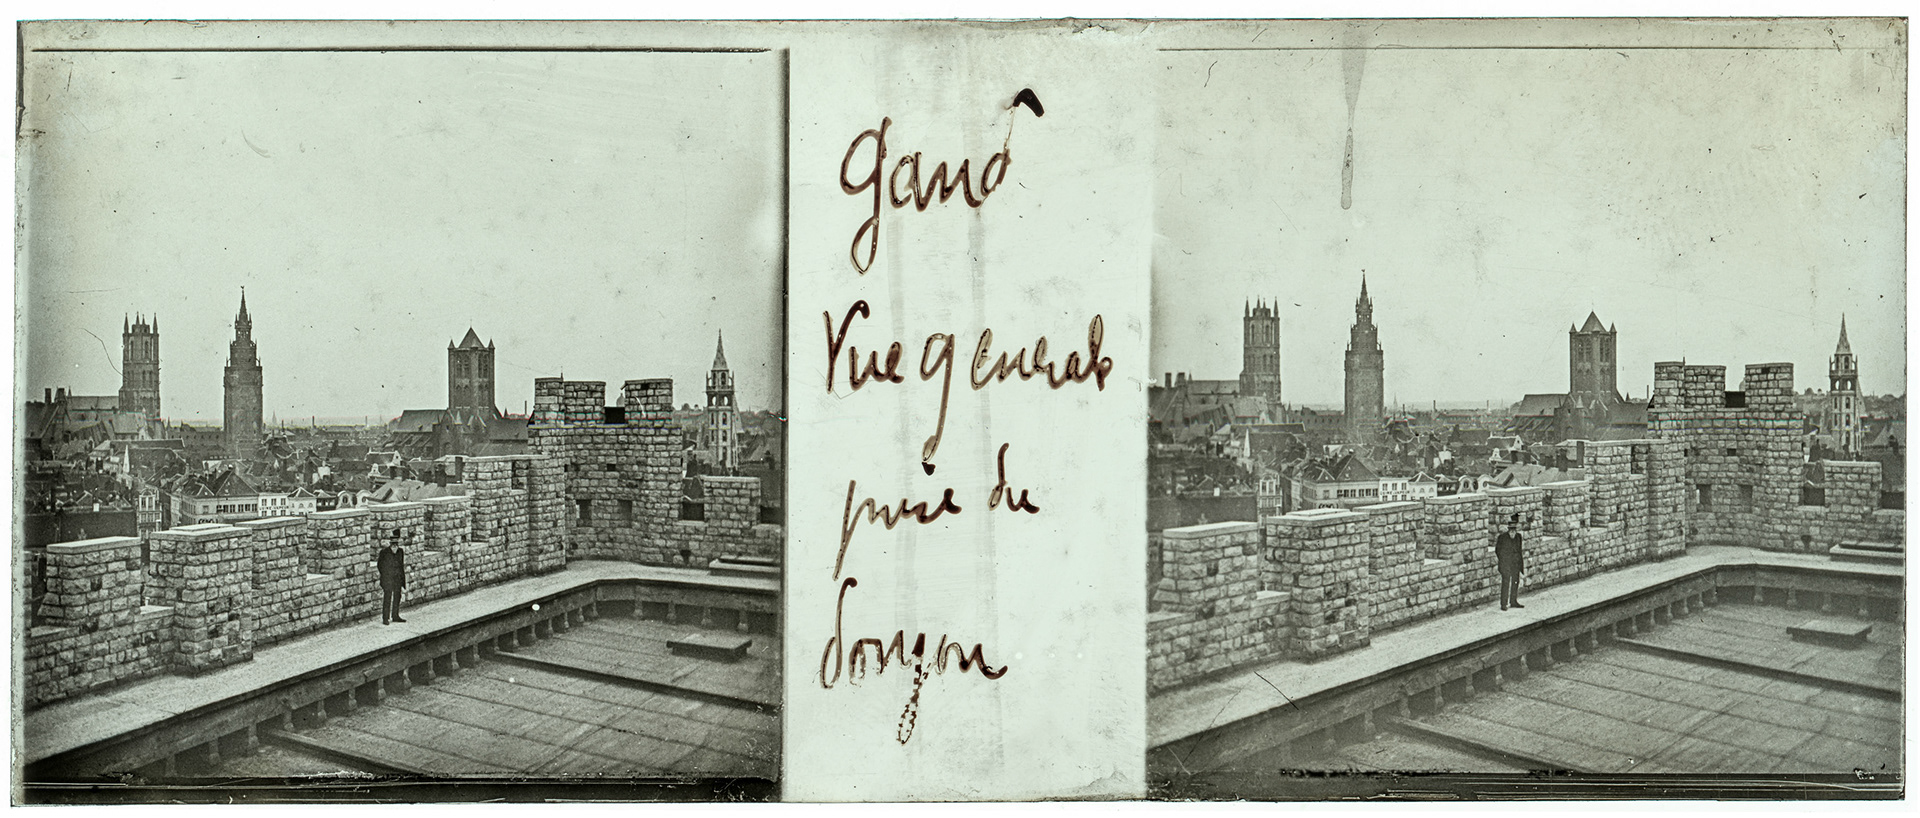 Gand
Vue generale
prise du
donjon